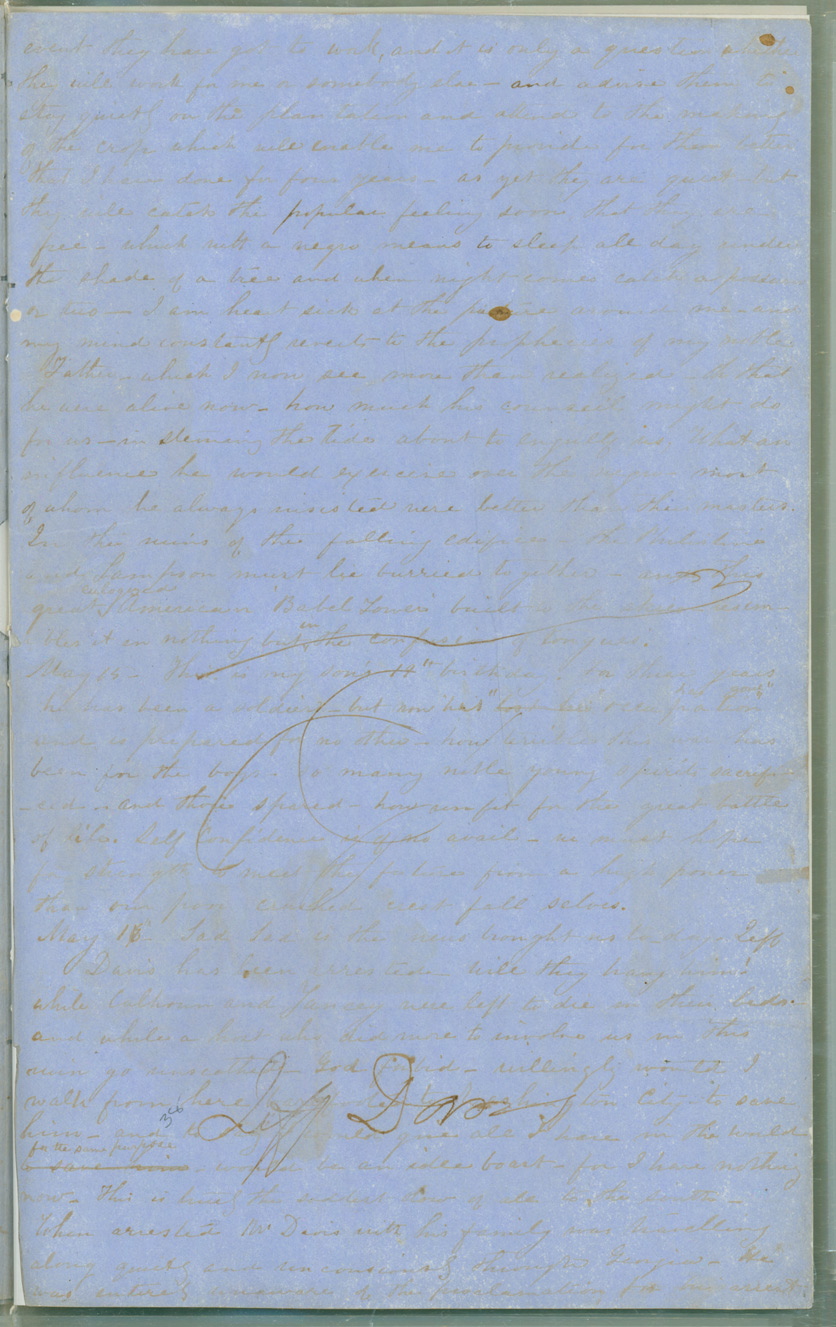 event they have got to work, and it is only a question whether
they will work for me or somebody else – and advise them to
stay quietly on the plantation and attend to the making
of the crop which will enable me to provide for them better
than I have done for four years – as yet they are quiet but
they will catch the popular feeling soon, that they are
free – which with a negro means to sleep all day under
the shade of a tree and when night comes catch a possum
or two – I am heart sick at the picture around me – and
my mind constantly reverts to the prophecies of my noble
Father – which I now see more than realized – Oh that
he were alive now – how much his counsel might do
for us – in stemming the tides about to engulf us. What an
influence he would exercise over the negro most
of whom he always insisted were better than their masters.
In the ruins of this falling edifice – the Philistines
and Sampson must lie burried together – and this
great American Babel Tower built to the resem-
bles it in nothing but in the confusion of tongues.
May 15 – This is my son's birthday. for three years
he has been a soldier – but now his occupation
and is prepared for no other – how this war has
been for the boys. So many noble young spirits sacrific-
-ed – and those spared – how unfit for the great battle
of life. Self Confidence is of no avail – we must hope
for strength to meet the future from a high power
than our poor crushed crest fall selves.
May 18 – Sad Sad is the news brought us to day – Jeff
Davis has been arrested – will they hang him?
while Calhoun and Yancey were left to die in their beds –
and while a host who did more to involve us in this
ruin go unscathed – God forbid – willingly would I
walk from here to Washington City to save
him – and to would give all I have in the world
for the same purpose
to save him – would be an idle boast – for I have nothing
now – This is the saddest blow of all to the south –
When arrested Mr Davis with his family was travelling
along quietly and unconsciously through Georgia – He
was entirely unaware of the proclamation for his arrest
Jeff Davis
36